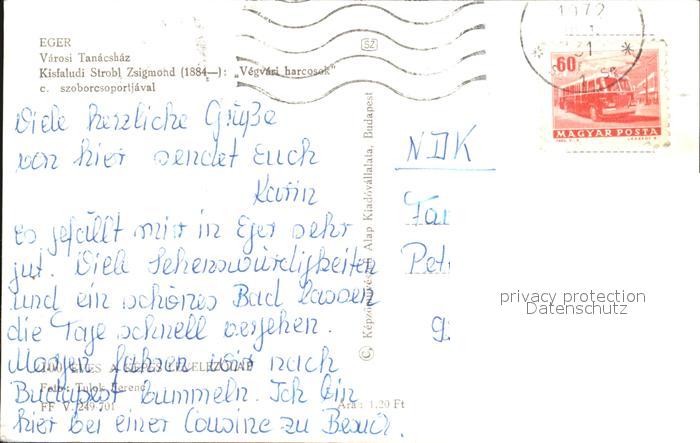 EGER
Városi Tanácsház
Kisfaludi Strobl Zsigmond (1884—): „Végvári harcosok”
c. szoborcsoportjával
SZ
1972
60f
MAGYAR POSTA
Viele herzliche Grüße
von hier sendet Euch
Karin
Es gefällt mir in Eger sehr
gut. Viele Sehenswürdigkeiten
und ein schönes Bad lassen
die Tage schnell vergehen.
Morgen fahren wir nach
Budapest bummeln. Ich bin
hier bei einer Cousine zu Besuch.
NDK
Fa
Pet
privacy protection
Datenschutz
ÉVES A
Foto: Tulok Ferenc
FF V. 249-701
Ára: 1,20 Ft
© Képzőművészeti Alap Kiadóvállalata, Budapest